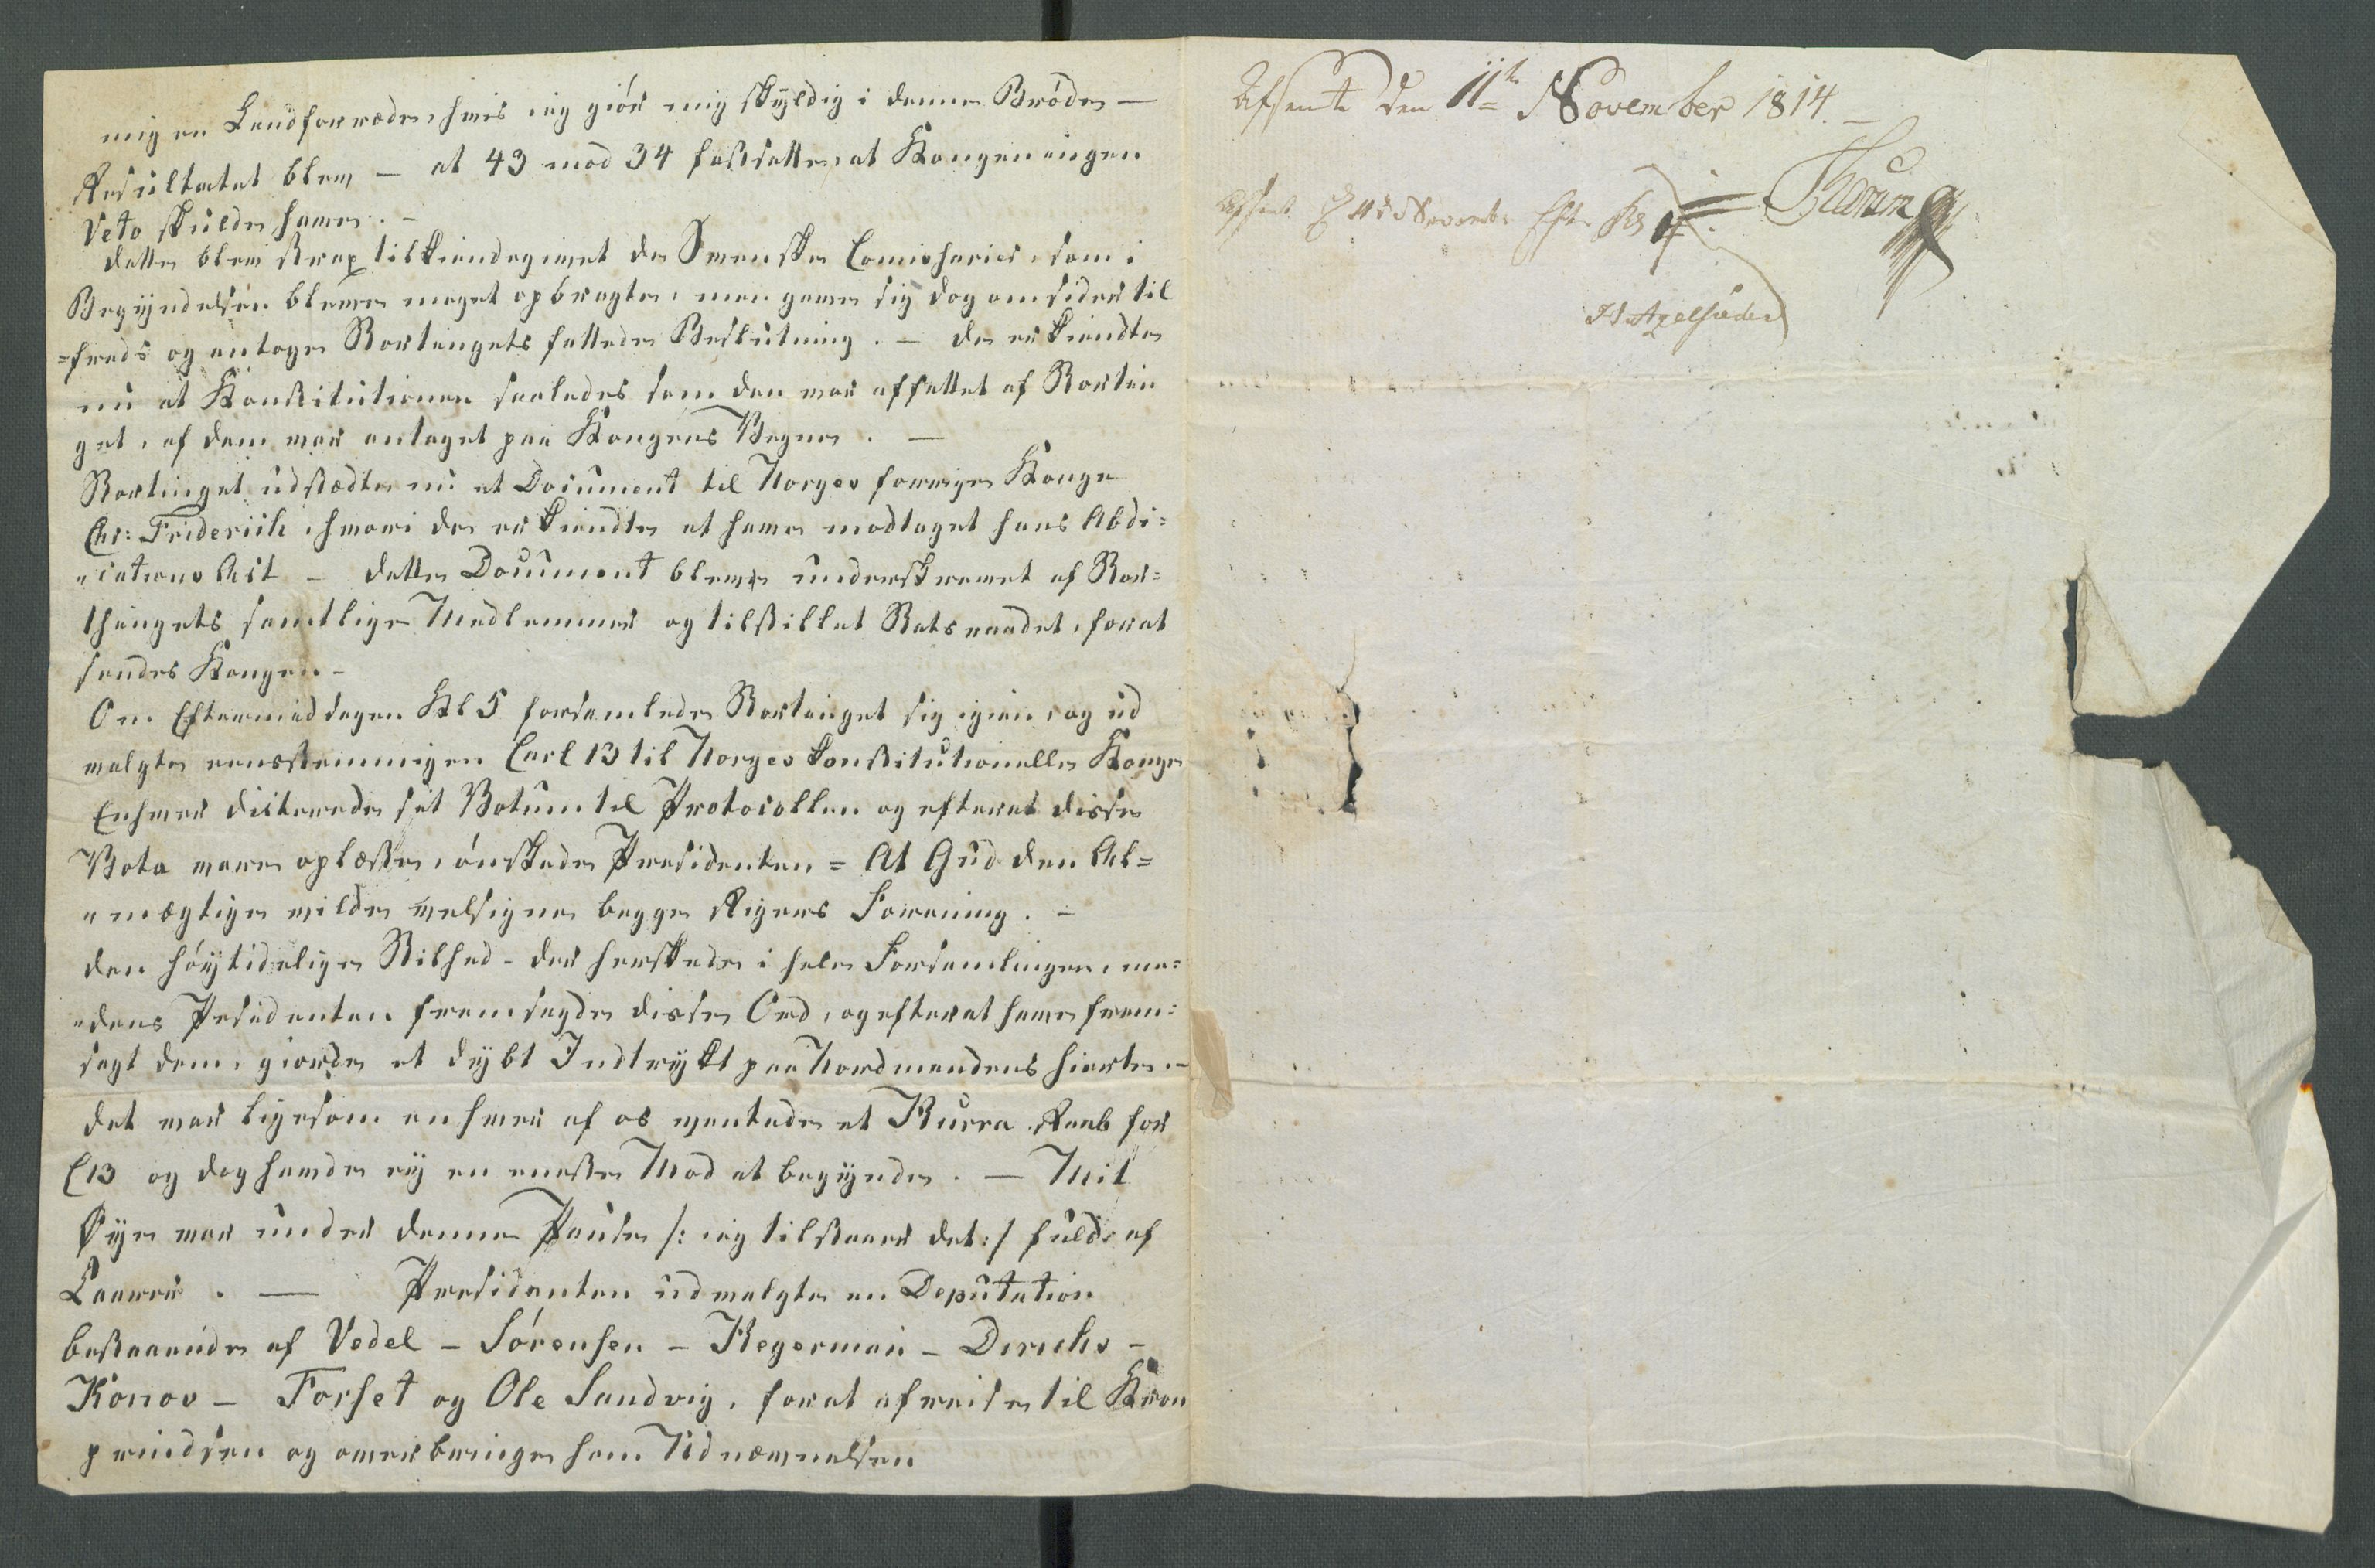 mig en Landforræder, hvis ieg giör mig skÿldig i denne Bröde —
Resultatet blev — at 43 mod 34 fastsatte, at Kongen ingen
Veto skulde have. —
dette blev strax tilkiendegivet de Svenske Comissarier, som i
Begÿndelsen bleve meget opbragte, men gave sig dog omsider til
=freds og antoge Stortingets fattede Beslutning. — de erkiendte
nu at Konstitutionen saaledes som den var affattet af Stortin
get, af dem var antaget paa Kongens Vegne. —
Stortinget udstædte nu et Document til Norges forrige Konge
Chr: Friderich, hvori de erkiendte at have modtaget hans Abdi=
"cations Act — dette Document bleve underskrevet af Stor=
thingets samtlige Medlemmer og tilstillet Statsraadet, for at
sendes Kongen —
Om Eftermiddagen Kl 5 forsamlede Stortinget sig igien, og ud
valgte eensstemmigen Carl 13 til Norges konstitutionelle Konge
Enhver dicterede sit Votum til Protocollen og efterat disse
Vota vare oplæste, önskede Presidenten = At Gud den Al=
"mægtige vilde velsigne begge Rigers Forening. —
den höÿtidelige Stilhed — der herskede i hele Forsamlingen, me=
"dens Presidenten fremsagde disse Ord, og efterat have frem=
sagt dem, giorde et dÿbt Indtrÿkt paa Nordmandens hierte. —
det var ligesom enhver af os ventede et Hurra Raab for
C 13 og dog havde eÿ en eneste Mod at begÿnde. — Mit
Øÿe var under denne Pause /: ieg tilstaaer det :/ fuld af
Taarer. — Presidenten udvalgte en Deputation
bestaaende af Vedel — Sörensen — Hegerman — Dirichs —
Konov — Forset og Ole Sandvig, for at afreise til Kron
prindsen og overbringe ham Udnævnelsen
Afsente den 11te November 1814. —
Afsent d 11 Novemb: Eft. Kl
H Axelsøder